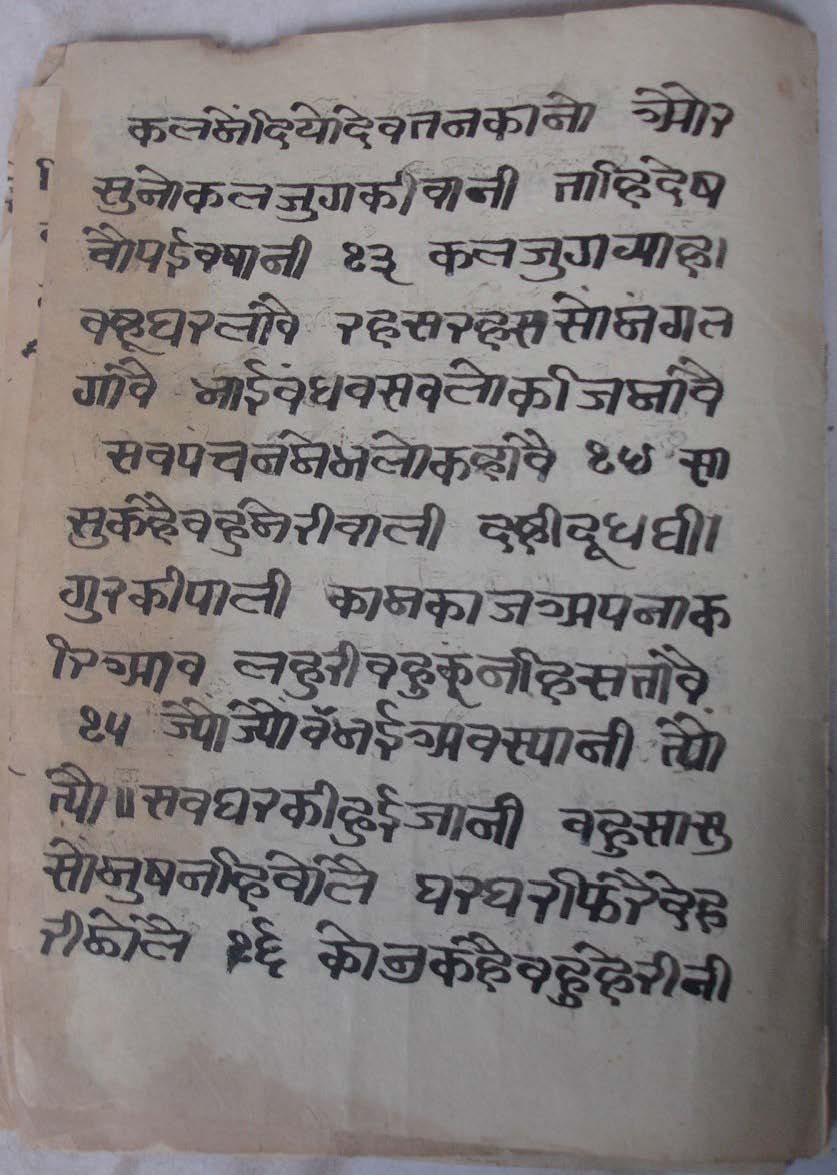 कलमेंदियोदेवतनकाने और
सुनोकलजुगकीवानी ताहिदेष
चौपईवषानी १३ कलजुगव्याह।
वहूघरलावै रहसरहससोमंगल
गावै भाईवंधवसवलोकजिमावै
सवपंचनमेभलोकहावै १४ सा
सुकहैवहुमेरीवाली दहीदूधघी।
गुरकीपाली कामकाजअपनाक
रिआव लहुरीवहुकूनहिसतावै
१५ ज्यौज्यौवँभईअवस्थानी त्यौ
त्यौ॥सवघरकीहुईजानी वहुसासु
सोमुषनहिवोलै घरघरफिरैदेह
रीछोलै १६ कोजुकहैवहुहेरीनी